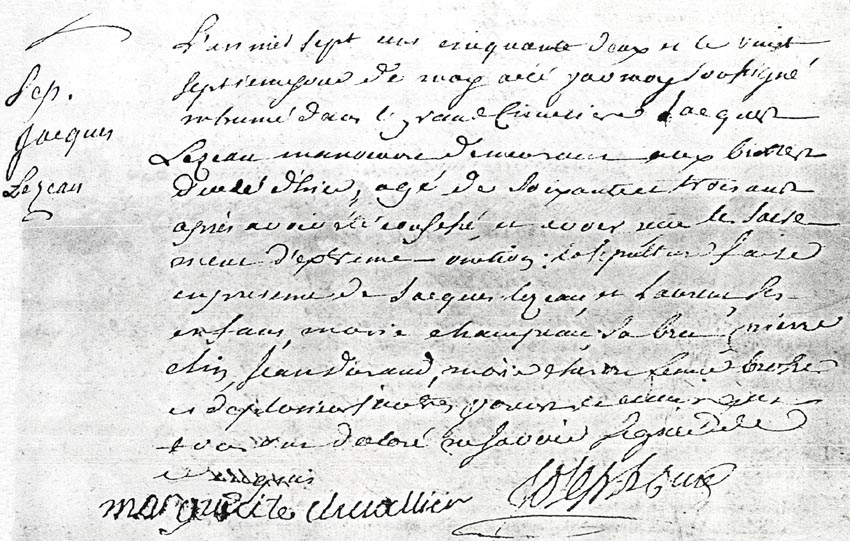 Sep.
Jacques
Lezeau
L'an mil sept cens cinquante deux et le vint
septiemejour de may a été par moy soussigné
inhumé dans le grand Cimetiere Jacques
Lezeau manœuvre demeurant aux
décédé d'hier, agé de soixante et trois ans
après avoir été confessé, et avoir recu le sacre
ment d'extreme onction; la sepulture faite
en presence de Jacques lezeau, et Laurent ses
enfans, marie champeau, sa bru, pierre
Jean durand, marie
et de plusieurs autres parens et amis qui
ont déclaré ne savoir signer de ce
marguerite chevallier